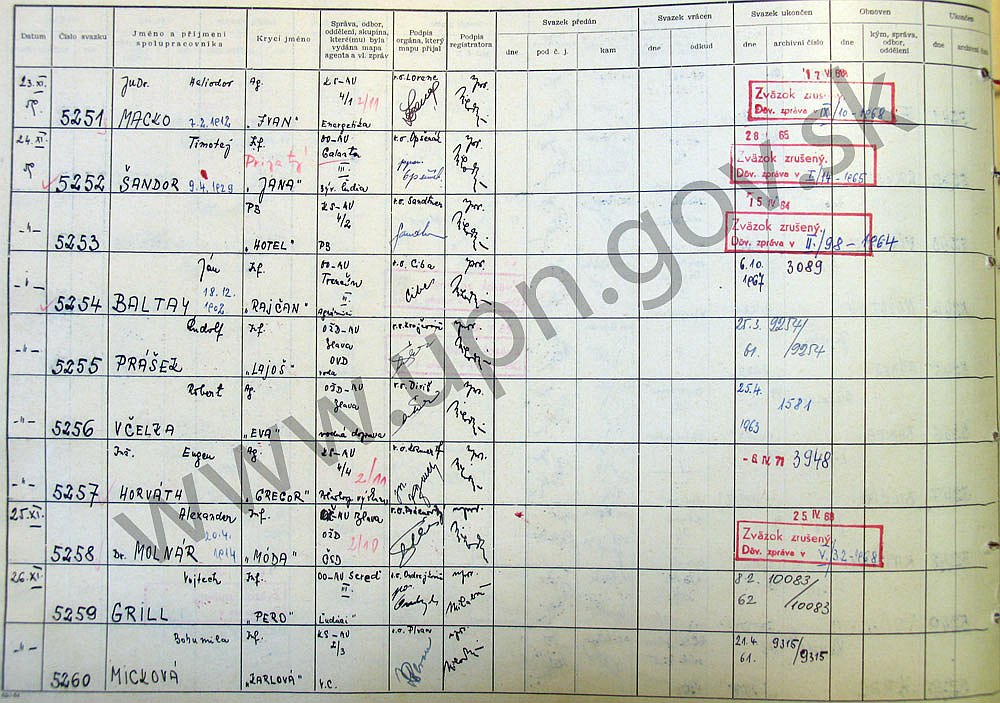 Datum
Číslo svazku
Jméno a příjmení spolupracovníka
Krycí jméno
Správa, odbor, oddělení, skupina, které(mu) byla vydána mapa agenta a vl. zpráv
Podpis orgána, který mapu přijal
Podpis registratora
Svazek předán
dne
pod č. j.
kam
Svazek vrácen
dne
odkud
Svazek ukončen
dne
archivní číslo
Obnoven
dne
kým, správa, odbor, oddělení
Ukončen
dne
archivní číslo
23.XI.
5251
JuDr. Heliodor
MACKO 7.2.1912
Ag.
"IVAN"
KS-AV
4/1 2/11
Energetika
v.o. Lorenc
npor.
Zväzok zrušený.
Dôv. zpráva v IX/10-1968
24.XI.
5252
Timotej
ŠANDOR 9.4.1929
Inf.
"JANA"
OO-AV
Galanta
III.
v.o. Opšenák
npor.
28 65
Zväzok zrušený.
Dôv. zpráva v I/14-1965
-"-
5253
PB
"HOTEL"
KS-AV
4/2
PB
v.o. Sandtner
npor.
15 IV 64
Zväzok zrušený.
Dôv. zpráva v II./98-1964
-"-
5254
Ján
BALTAY 18.12.1902
Inf.
"RAJČAN"
OO-AV
Trenčín
II
v.o. Ciba
npor.
6.10.1967 3089
-"-
5255
Rudolf
PRÁŠEK
Inf.
"LAJOŠ"
OŽD-AV
Zlava
OVD
npor.
25.3.61. 9254/9254
-"-
5256
Robert
VČELKA
Ag.
"EVA"
OŽD-AV
Zlava
vodná doprava
npor.
25.4.1963 1581
-"-
5257
Inž. Eugen
HORVÁTH
Ag.
"GREGOR"
KS-AV
4/4 2/11
npor.
-6 IV 71 3948
25.XI.
5258
Alexander
Dr. MOLNÁR 20.4.1914
Inf.
"MÓDA"
OŽD 2/10
ČSD
npor.
25 IV 68
Zväzok zrušený.
Dôv. zpráva v V./32-1968
26.XI.
5259
Vojtech
GRILL
Inf.
"PERO"
OO-AV Sereď
III
npor.
8.2.62 10083/10083
-"-
5260
Bohumila
MICKOVÁ
Inf.
"KARLOVÁ"
KS-AV
2/3
V.C.
npor.
21.4.61. 9315/9315
www.upn.gov.sk